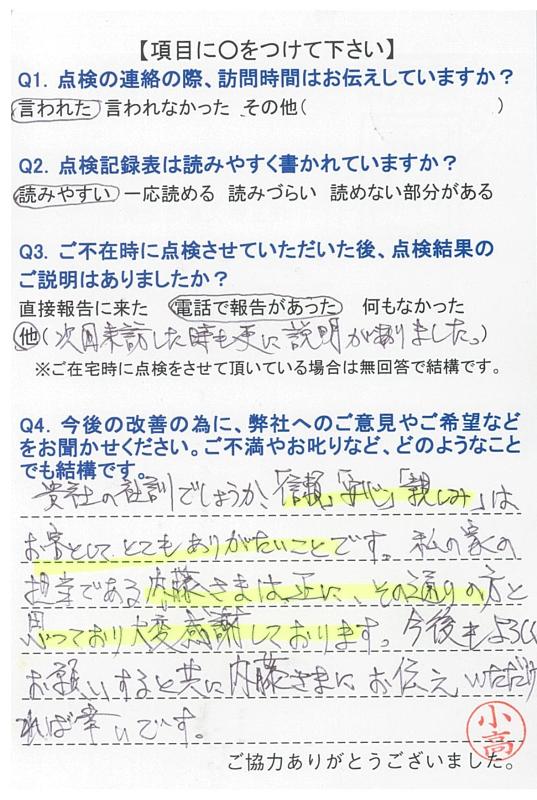 【項目に○をつけて下さい】
Q1. 点検の連絡の際、訪問時間はお伝えしていますか？
言われた 言われなかった その他( )
Q2. 点検記録表は読みやすく書かれていますか？
読みやすい 一応読める 読みづらい 読めない部分がある
Q3. ご不在時に点検させていただいた後、点検結果の
ご説明はありましたか？
直接報告に来た 電話で報告があった 何もなかった
他(次回来訪した時も更に説明がありました。)
※ご在宅時に点検をさせて頂いている場合は無回答で結構です。
Q4. 今後の改善の為に、弊社へのご意見やご希望など
をお聞かせください。ご不満やお叱りなど、どのようなこと
でも結構です。
貴社の社訓でしょうか、「信頼」「安心」「親しみ」は
お客としてとてもありがたいことです。私の家の
担当である内藤さまは正に、その通りの方と
思っており大変感謝しております。今後もよろしく
お願いすると共に内藤さまにお伝えいただけ
れば幸いです。
小高
ご協力ありがとうございました。